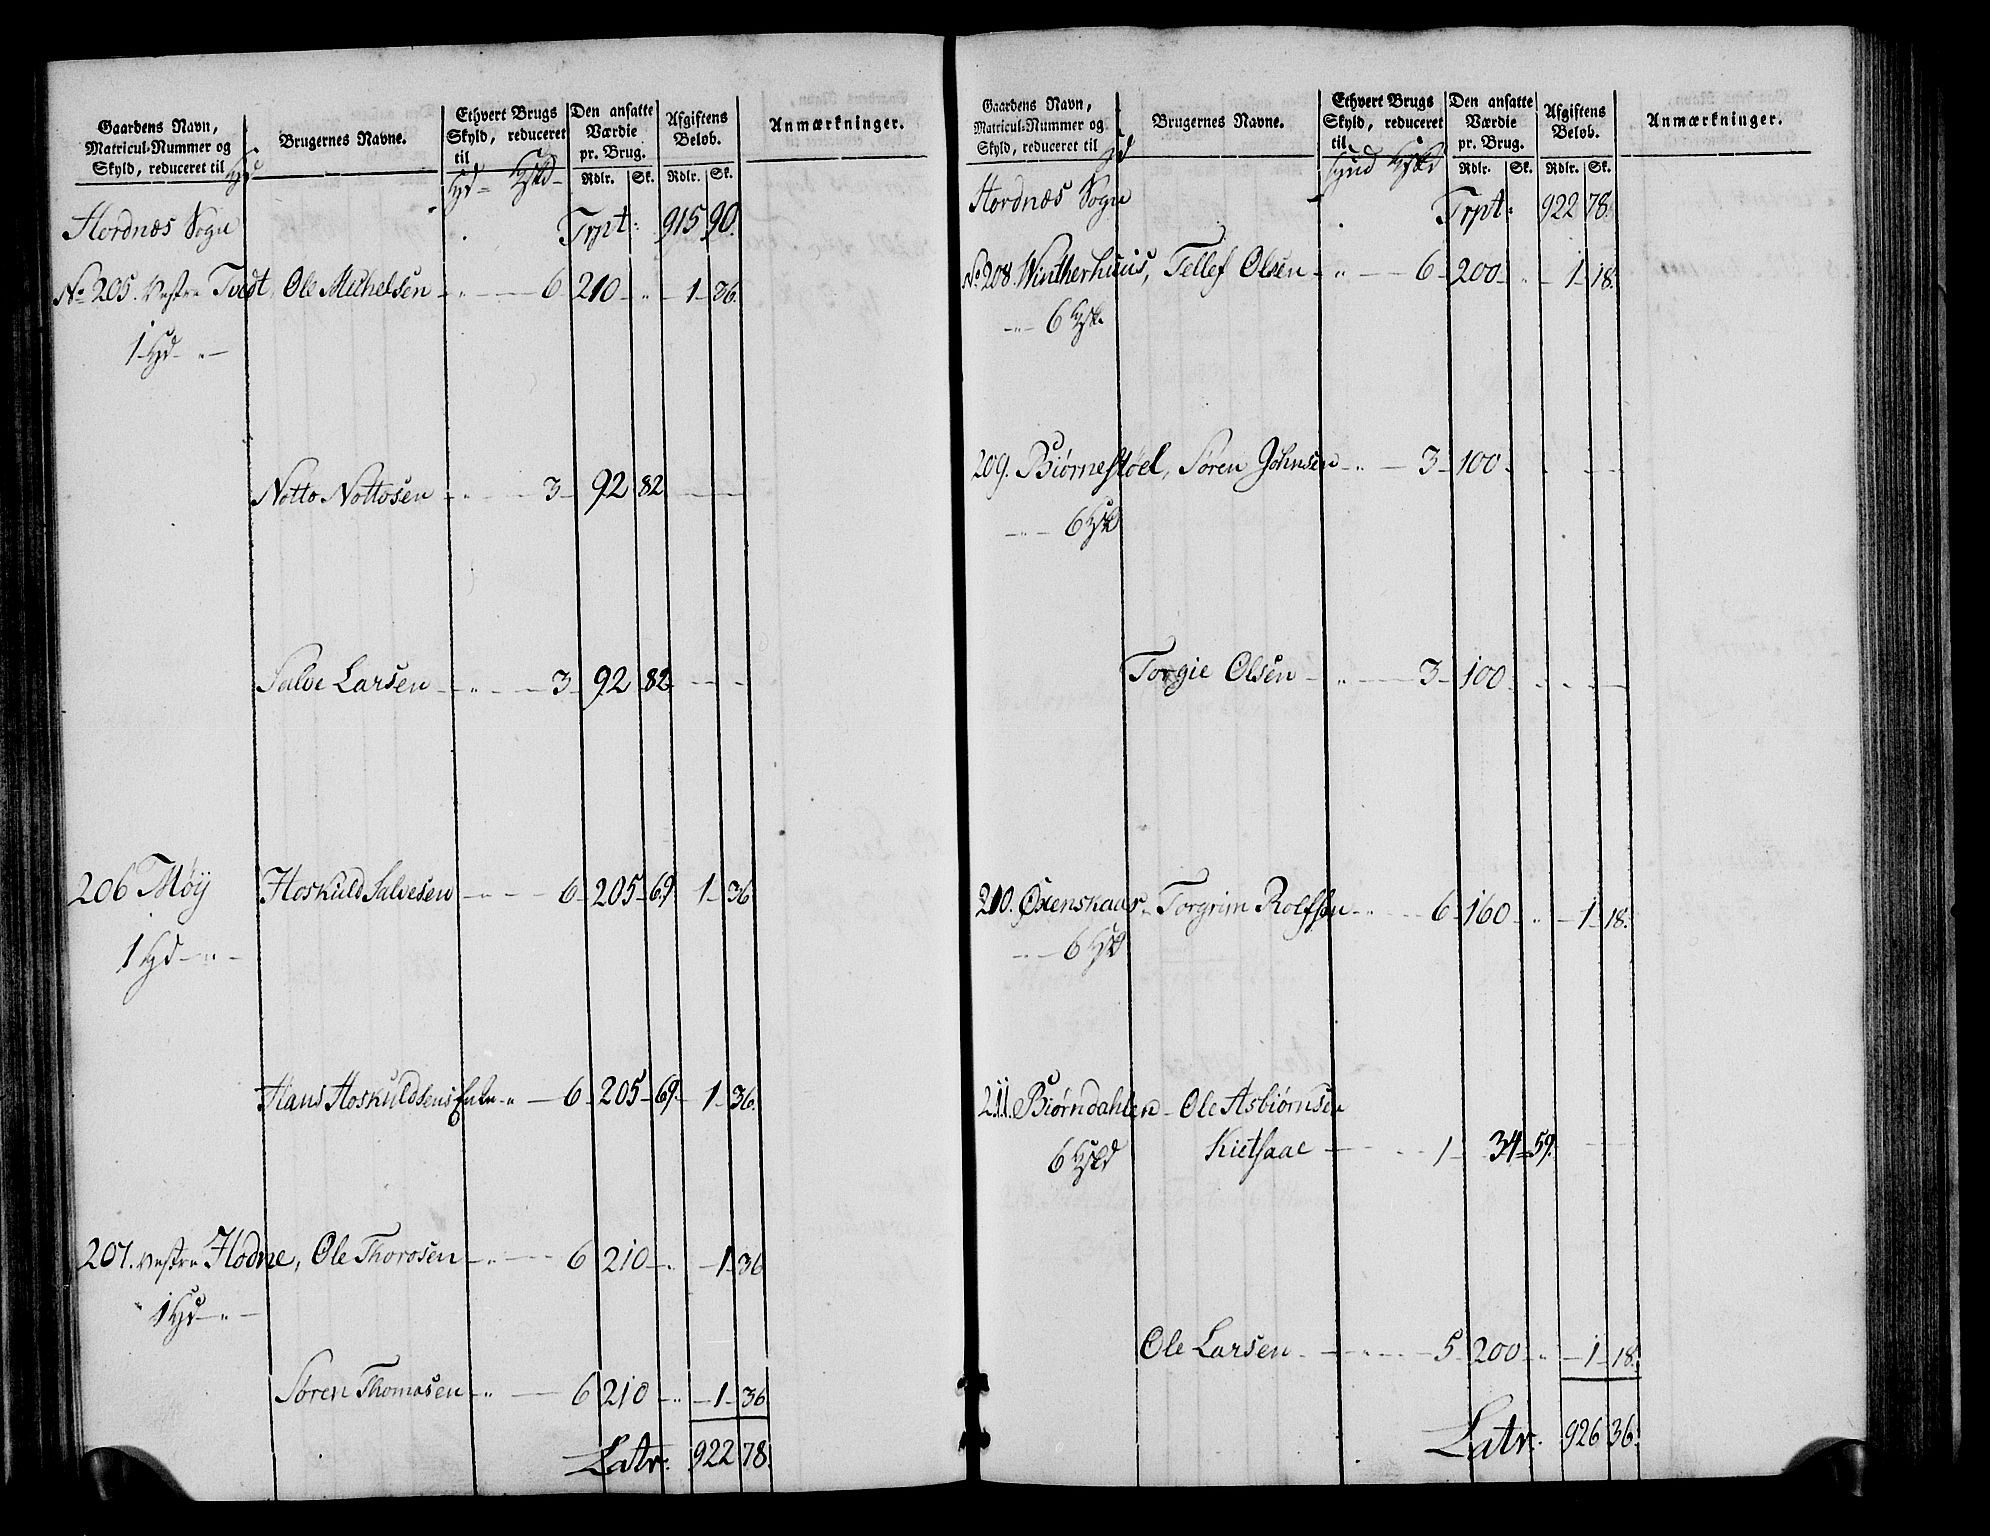 Gaardens Navn,
Matricul-Nummer og
Skyld, reduceret til
Brugernes Navne.
Ethvert Brugs
Skyld, reduceret
til
Den ansatte
Værdie
pr. Brug.
Rdlr. Sk.
Afgiftens
Beløb.
Rdlr. Sk.
Anmærkninger.
Hordnæs Sogn Trpt: 915 90.
No 205. Vestre Tvedt, Ole Michelsen - " - 6 - 210 - " - 1 - 36.
1 Hd - " -
Notto Nottosen - " - 3 - 92 82
Salve Larsen - " - 3 - 92 82
206 Møÿ Hoskuld Salvesen - " - 6 - 205 - 69. 1 - 36
1 Hd - " -
Hans Hoskuldsens Enke - " - 6 - 205 - 69. 1 - 36.
207. Vestre Hodne, Ole Thorosen - " - 6 210 - " - 1 - 36
1 Hd - " -
Søren Thomasen - " - 6 210 - " - 1 - 36
Latr: 922 78.
Gaardens Navn,
Matricul-Nummer og
Skyld, reduceret til
Brugernes Navne.
Ethvert Brugs
Skyld, reduceret
til
Den ansatte
Værdie
pr. Brug.
Rdlr. Sk.
Afgiftens
Beløb.
Rdlr. Sk.
Anmærkninger.
Hordnæs Sogn Trpt: 922 78.
No 208. Wintherhuus, Tellef Olsen - " - 6 - 200 - " - 1 - 18.
- " - 6
209. Biørnestøel, Søren Johnsen - " - 3 - 100
- " - 6
Torgie Olsen - " - 3 - 100
210. Oxenskaar - Torgrim Rolfsen - " - 6 - 160 - " - 1 - 18.
- " - 6
211. Biørndahlen - Ole Asbiørnsen
6 Kietsaae - 1 - 34 - 59.
Ole Larsen - " - 5 - 200 - " - 1 - 18.
Latr: 926 36.